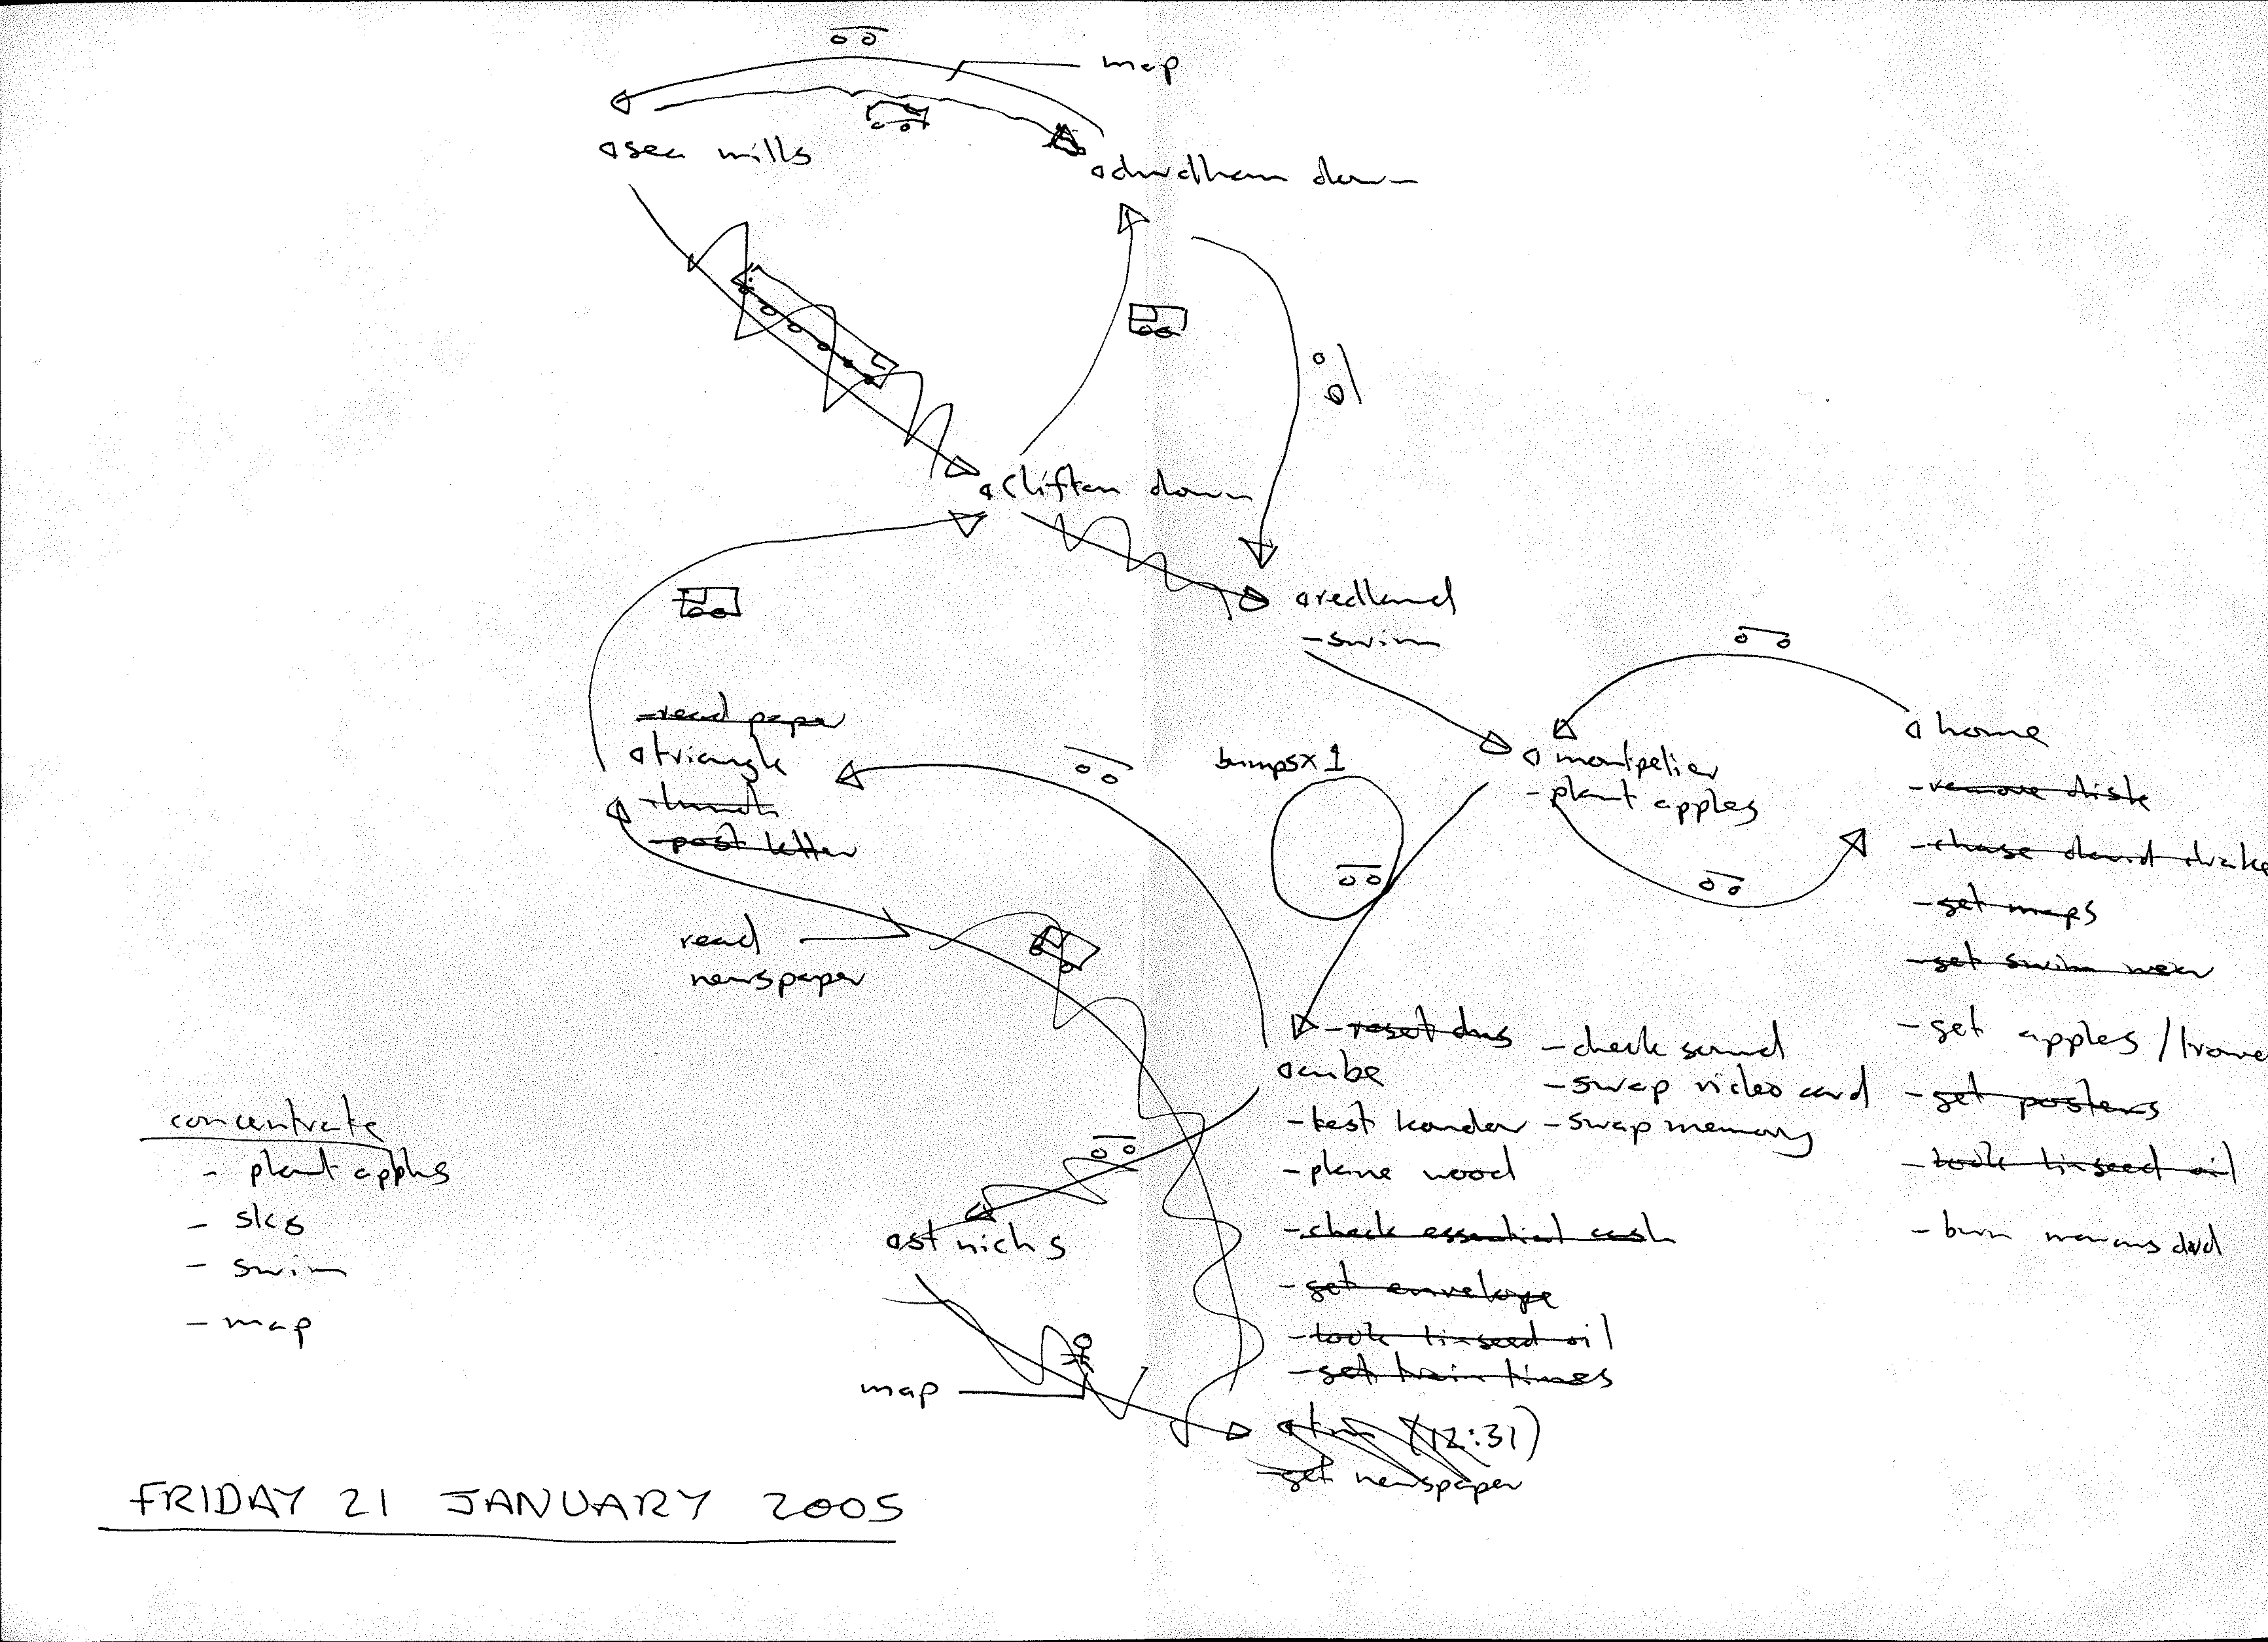 map
sea mills
durdham down
clifton down
redland
- swim
- read paper
triangle
- lunch
- post letter
bumps x 1
montpelier
- plant apples
home
- remove disk
- chase david drake
- get maps
- get swim wear
- get apples /
- get posters
- linseed oil
- burn dvd
read
newspaper
- reset dns
cube
- test
- plane wood
- check essential cash
- get envelope
- linseed oil
- get train times
- check sound
- swap video card
- swap memory
concentrate
- plant apples
-
- swim
- map
st nichs
map
(12:31)
- get newspaper
FRIDAY 21 JANUARY 2005